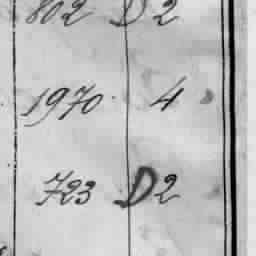 802 D 2
1970 4
723 D 2